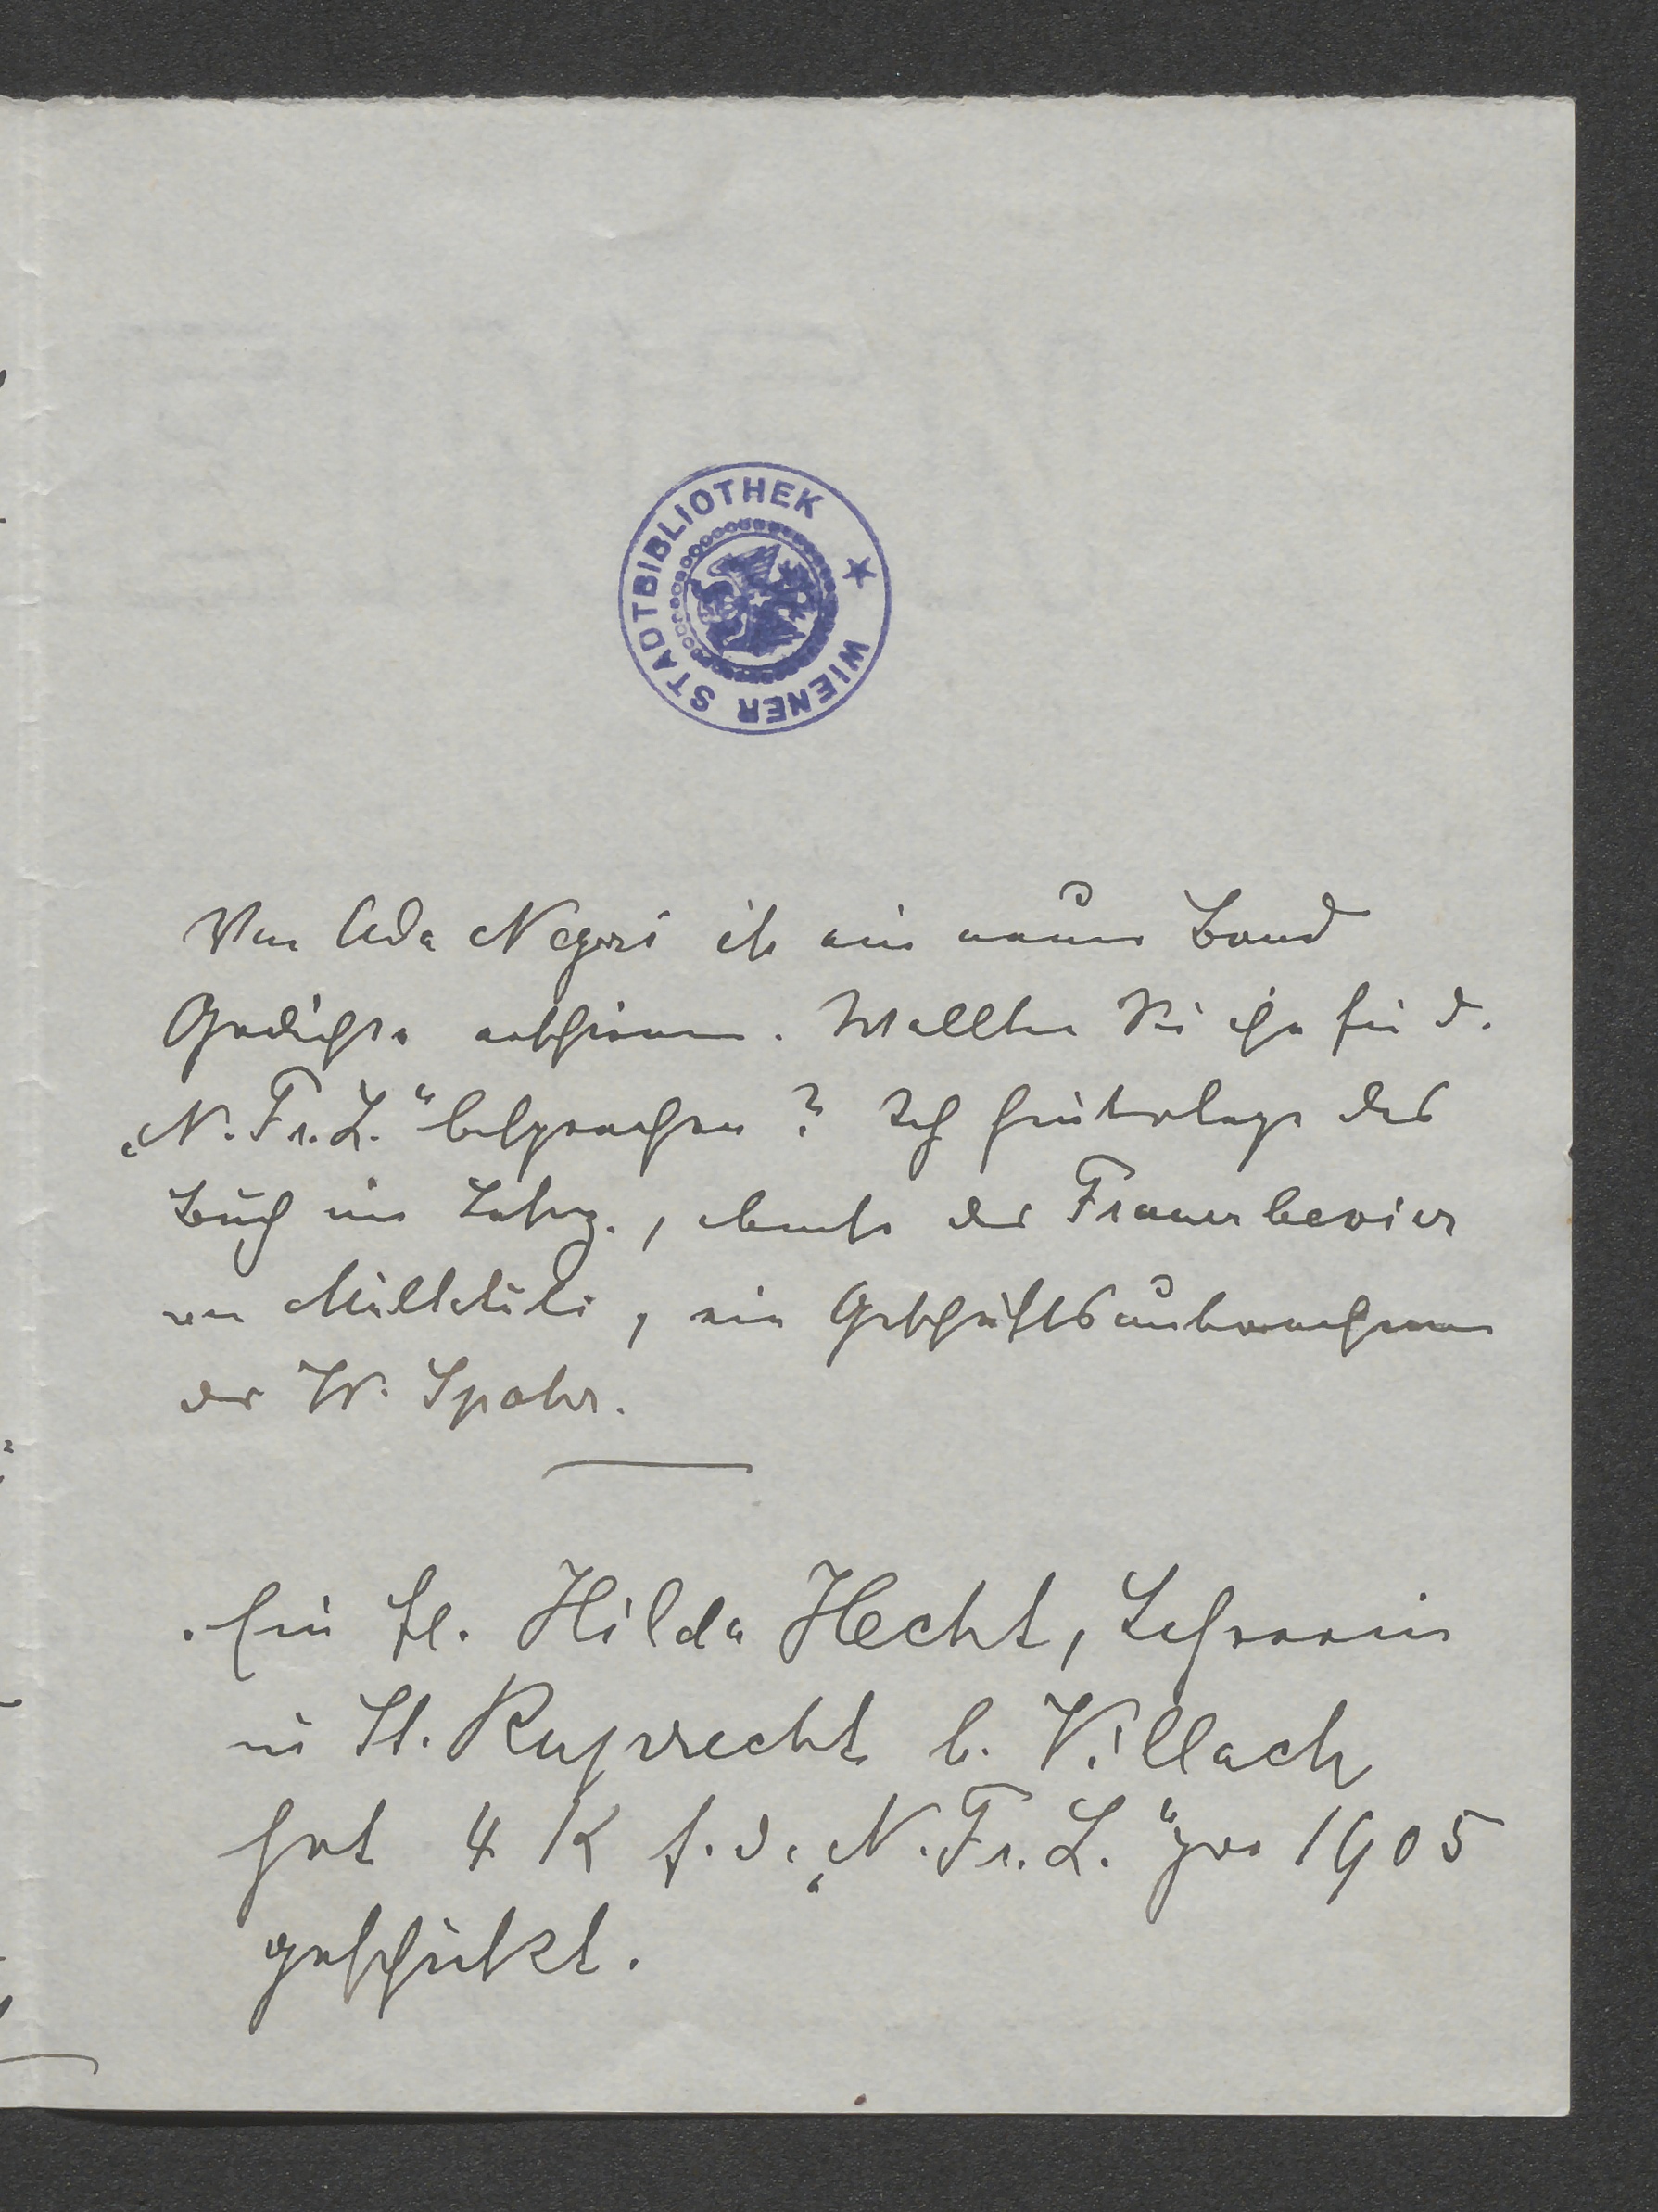 WIENER STADTBIBLIOTHEK
Von Ada Negri ist ein neuer Band
Gedichte erschienen. Wollten Sie ihn für d.
„N. Fr. L.“ besprechen? Ich hinterlege das
Buch im Sekrg., ebenso das Frauenbrevier
von Multatuli, ein Geschäftsunternehmen
des W. Spohr.
Ein Frl. Hilda Hecht, Lehrerin
in St. Ruprecht b. Villach
hat 4 K f. d. „N. Fr. L.“ pro 1905
geschickt.